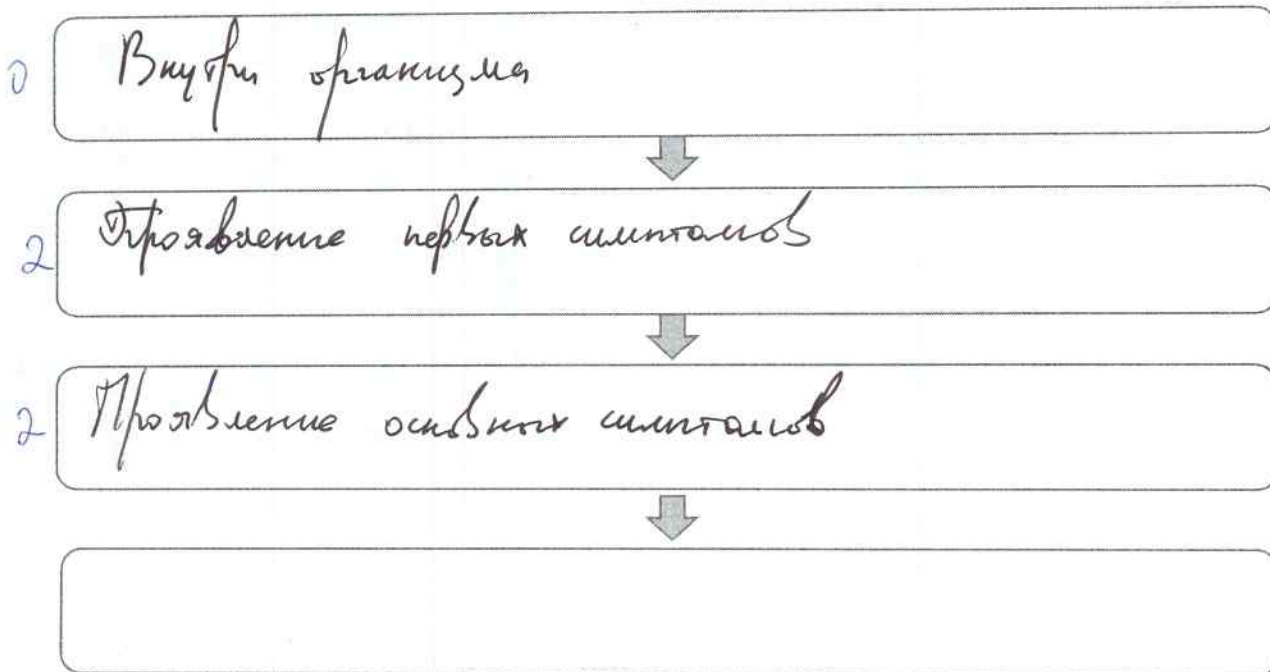 0 Внутри организма
2 Проявление первых симптомов
2 Проявление основных симптомов